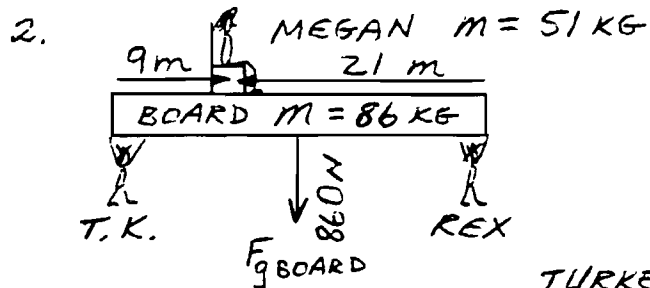 2. MEGAN m = 51 KG
9m 21 m
BOARD m = 86 KG
T.K. 860N REX
Fg BOARD
TURKE